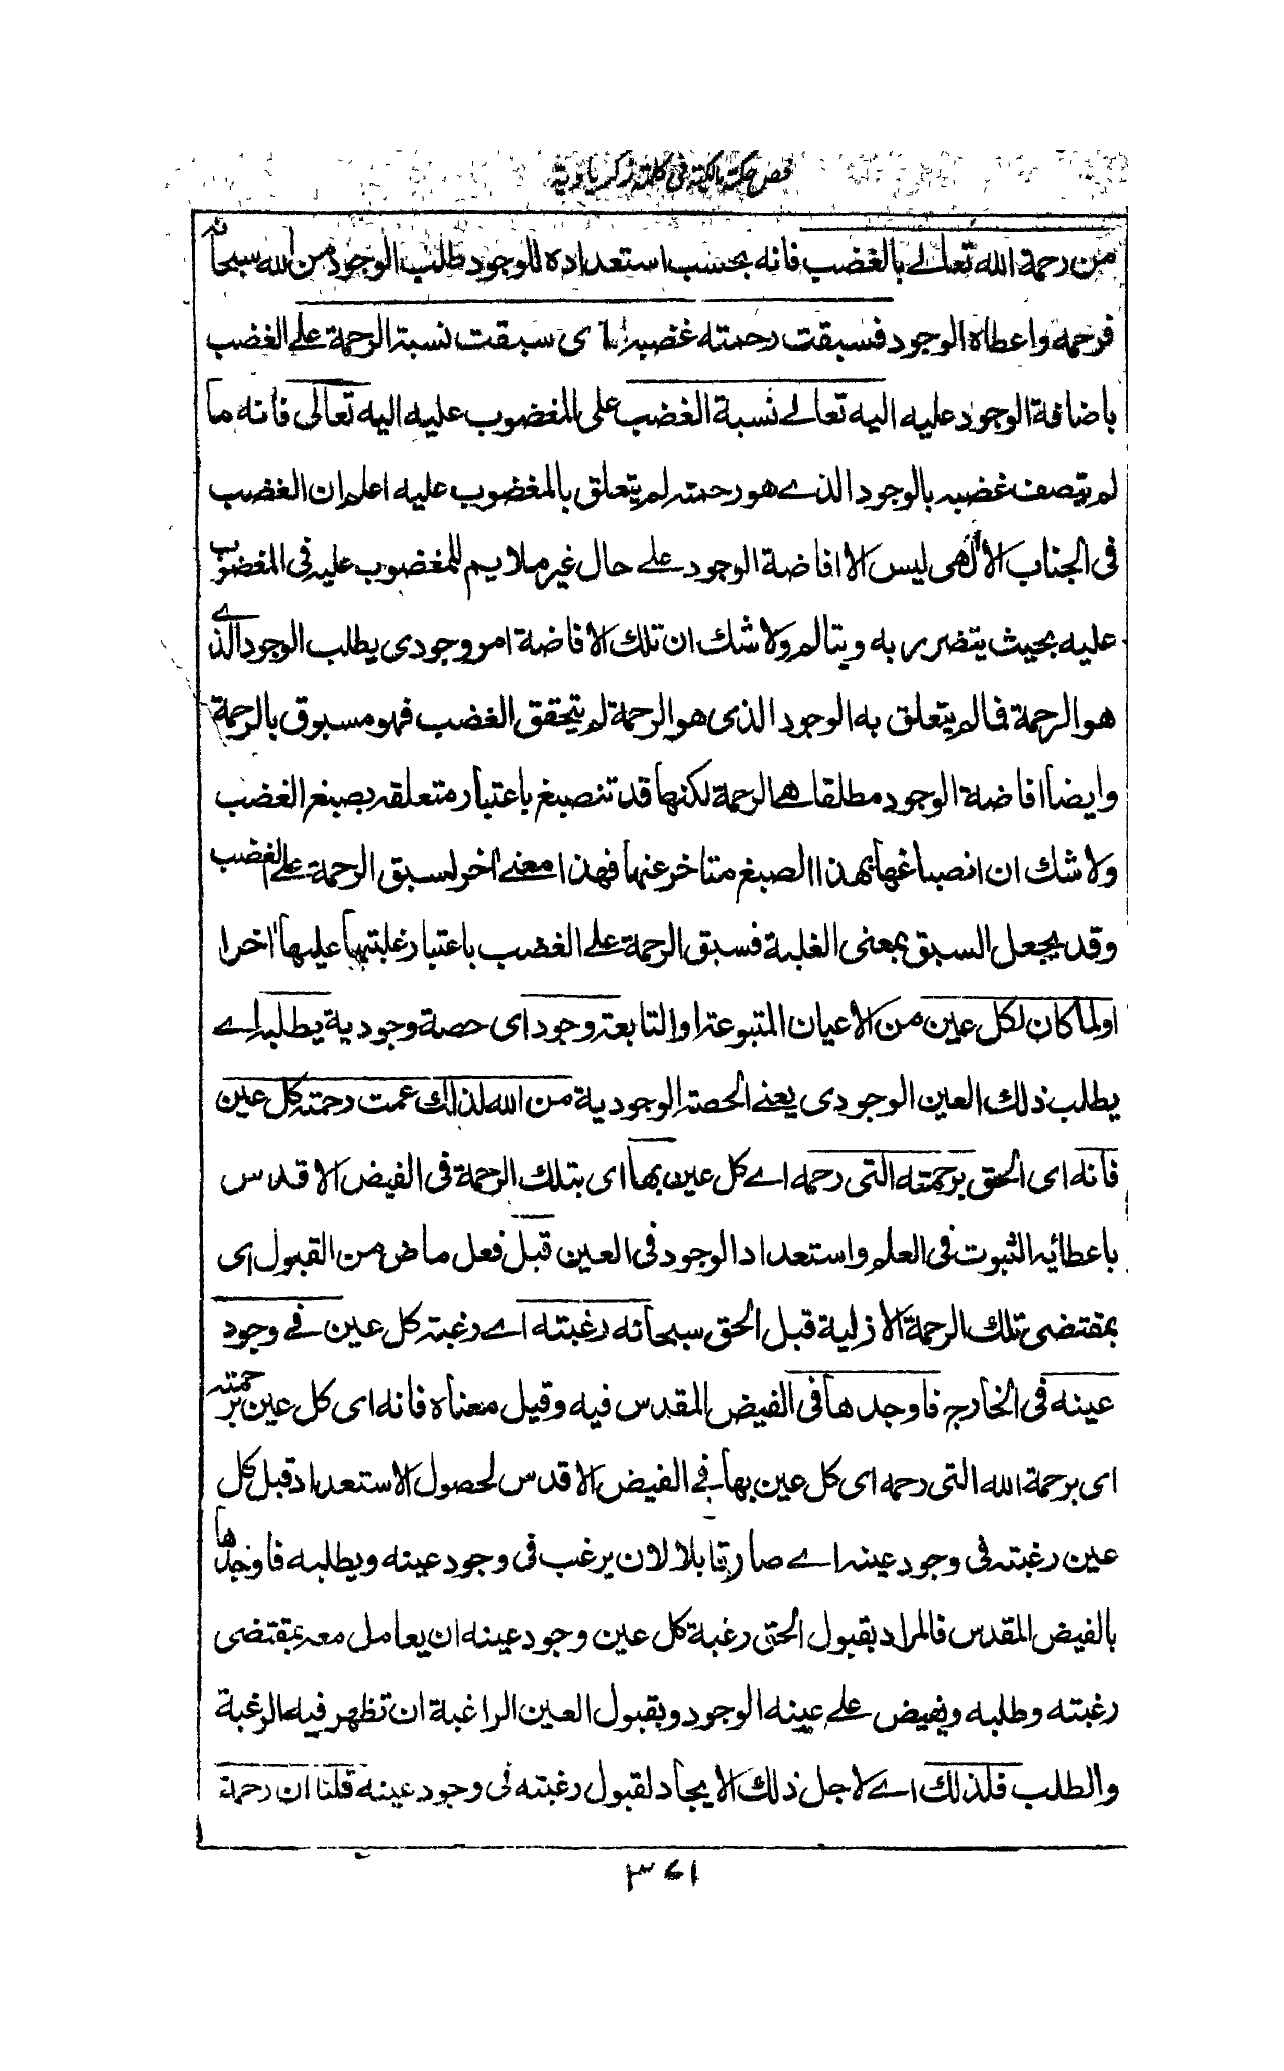 فص حكمة مالكية في كلمة زكرياوية
من رحمة الله تعالے بالغضب فانه بحسب استعداده للوجود طلب الوجود من الله سبحانه
فرحمه واعطاه الوجود فسبقت رحمته غضبه اے سبقت نسبة الرحمة علے الغضب
باضافة الوجود عليه اليه تعالے نسبة الغضب على المغضوب عليه اليه تعالى فانه ما
لم يتصف غضبه بالوجود الذے هو رحمته لم يتعلق بالمغضوب عليه اعلم ان الغضب
فى الجناب الالٰهى ليس الا افاضة الوجود علے حال غير ملايم للمغضوب عليه فى المغضوب
عليه بحيث يتضرر به ويتالم ولا شك ان تلك الافاضة امر وجودى يطلب الوجود الذے
هو الرحمة فمالم يتعلق به الوجود الذى هو الرحمة لم يتحقق الغضب فهو مسبوق بالرحمة
وايضا افاضة الوجود مطلقا هى الرحمة لكنها قد تنصبغ باعتبار متعلقه بصبغ الغضب
ولا شك ان انصباغها بهذا الصبغ متاخر عنها فهذا معنے اخر لسبق الرحمة علے الغضب
وقد يجعل السبق بمعنى الغلبة فسبق الرحمة علے الغضب باعتبار غلبتها عليها اخرا
اولما كان لكل عين من الاعيان المتبوعة او التابعة وجود اى حصة وجودية يطلبه اے
يطلب ذلك العين الوجودى يعنے الحصة الوجودية من الله لذلك عمت رحمته كل عين
فانه اى الحق برحمته التى رحمه اے كل عين بها اى بتلك الرحمة فى الفيض الاقدس
باعطائه الثبوت فى العلم واستعداد الوجود فى العين قبل فعل ماض من القبول اى
بمقتضى تلك الرحمة الازلية قبل الحق سبحانه رغبته اے رغبة كل عين فے وجود
عينه فى الخارج فاوجدها فى الفيض المقدس فيه وقيل معناه فانه اى كل عين برحمته
اى برحمة الله التى رحمه اى كل عين بها فے الفيض الاقدس لحصول الاستعداد قبل كل
عين رغبته فى وجود عينه اے صار قابلا لان يرغب فى وجود عينه ويطلبه فاوجدها
بالفيض المقدس فالمراد بقبول الحق رغبة كل عين وجود عينه ان يعامل معه بمقتضى
رغبته وطلبه ويفيض علے عينه الوجود وبقبول العين الراغبة ان تظهر فيه الرغبة
والطلب فلذلك اے لاجل ذلك الايجاد لقبول رغبته فى وجود عينه قلنا ان رحمة